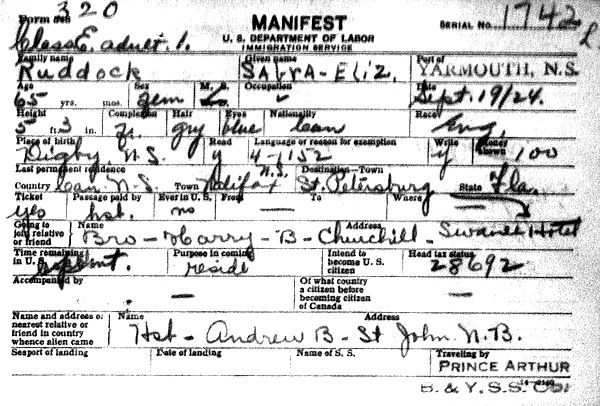 Form no. 320
MANIFEST
SERIAL No. 1742
U. S. DEPARTMENT OF LABOR
IMMIGRATION SERVICE
Class E. adult. 1.
Family name Given name Port of
Ruddock YARMOUTH, N.S.
Age Sex M. S. Occupation Date
65 yrs. mos. fem Sept. 19/24.
Height Complexion Hair Eyes Nationality Race
5 ft. 3 in. fr. gry blue can Eng.
Place of birth Read Language or reason for exemption Write Money Shown
Digby, N.S. y y 100
Last permanent residence Destination—Town State
Country Can. N.S. Town Halifax N.S. St. Petersburg Fla.
Ticket Passage paid by Ever in U.S. From To Where
yes hst. no — —
Going to join relative or friend Name Address
Bro - Harry - B - Churchill - Hotel
Time remaining in U.S. Purpose in coming Intend to become U.S. citizen Head tax status
reside 28692
Accompanied by Of what country a citizen before becoming citizen of Canada
— —
Name and address of nearest relative or friend in country whence alien came Name Address
Hst - Andrew B - St John. N.B.
Seaport of landing Date of landing Name of S. S. Traveling by
PRINCE ARTHUR
B. & Y. S.S. Co.